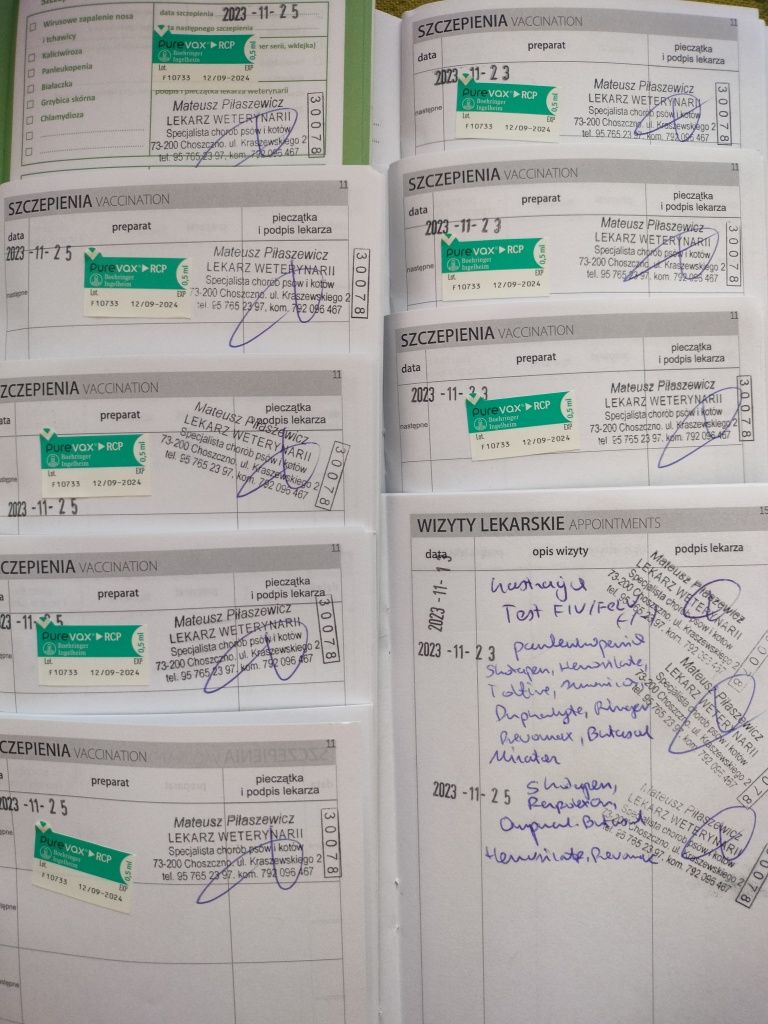 Wirusowe zapalenie nosa
i tchawicy
Kaliciwiroza
Panleukopenia
Białaczka
Grzybica skórna
Chlamydioza
data szczepienia 2023 -11- 25
ta następnego szczepienia
Purevax RCP
Boehringer
Ingelheim
0,5 ml
Lot. EXP
F10733 12/09-2024
ner serii, wklejka)
podpis i pieczątka lekarza weterynarii
Mateusz Piłaszewicz
LEKARZ WETERYNARII
Specjalista chorób psów i kotów
73-200 Choszczno, ul. Kraszewskiego 2
tel. 95 765 23 97, kom. 792 096 467
30078
SZCZEPIENIA VACCINATION 11
data preparat pieczątka
i podpis lekarza
2023 -11- 25
następne
Purevax RCP
Boehringer
Ingelheim
0,5 ml
Lot. EXP
F10733 12/09-2024
Mateusz Piłaszewicz
LEKARZ WETERYNARII
Specjalista chorób psów i kotów
73-200 Choszczno, ul. Kraszewskiego 2
tel. 95 765 23 97, kom. 792 096 467
30078
SZCZEPIENIA VACCINATION 11
ata preparat pieczątka
i podpis lekarza
Purevax RCP
Boehringer
Ingelheim
0,5 ml
Lot. EXP
F10733 12/09-2024
2023 -11- 25
Mateusz Piłaszewicz
LEKARZ WETERYNARII
Specjalista chorób psów i kotów
73-200 Choszczno, ul. Kraszewskiego 2
tel. 95 765 23 97, kom. 792 096 467
30078
CZEPIENIA VACCINATION 11
ta preparat pieczątka
i podpis lekarza
23 -11- 25
stępne
Purevax RCP
Boehringer
Ingelheim
0,5 ml
Lot. EXP
F10733 12/09-2024
Mateusz Piłaszewicz
LEKARZ WETERYNARII
Specjalista chorób psów i kotów
73-200 Choszczno, ul. Kraszewskiego 2
tel. 95 765 23 97, kom. 792 096 467
30078
CZEPIENIA VACCINATION 11
a preparat pieczątka
i podpis lekarza
2023 -11- 25
stępne
Purevax RCP
Boehringer
Ingelheim
0,5 ml
Lot. EXP
F10733 12/09-2024
Mateusz Piłaszewicz
LEKARZ WETERYNARII
Specjalista chorób psów i kotów
73-200 Choszczno, ul. Kraszewskiego 2
tel. 95 765 23 97, kom. 792 096 467
30078
tępne
SZCZEPIENIA VACCINATION 11
data preparat pieczątka
i podpis lekarza
2023 -11- 23
następne
Purevax RCP
Boehringer
Ingelheim
0,5 ml
Lot. EXP
F10733 12/09-2024
Mateusz Piłaszewicz
LEKARZ WETERYNARII
Specjalista chorób psów i kotów
73-200 Choszczno, ul. Kraszewskiego 2
tel. 95 765 23 97, kom. 792 096 467
30078
SZCZEPIENIA VACCINATION 11
data preparat pieczątka
i podpis lekarza
2023 -11- 23
następne
Purevax RCP
Boehringer
Ingelheim
0,5 ml
Lot. EXP
F10733 12/09-2024
Mateusz Piłaszewicz
LEKARZ WETERYNARII
Specjalista chorób psów i kotów
73-200 Choszczno, ul. Kraszewskiego 2
tel. 95 765 23 97, kom. 792 096 467
30078
SZCZEPIENIA VACCINATION 11
data preparat pieczątka
i podpis lekarza
2023 -11- 23
następne
Purevax RCP
Boehringer
Ingelheim
0,5 ml
Lot. EXP
F10733 12/09-2024
Mateusz Piłaszewicz
LEKARZ WETERYNARII
Specjalista chorób psów i kotów
73-200 Choszczno, ul. Kraszewskiego 2
tel. 95 765 23 97, kom. 792 096 467
30078
WIZYTY LEKARSKIE APPOINTMENTS 15
data opis wizyty podpis lekarza
2023 -11- 13
Test FIV/FeLV
Mateusz Piłaszewicz
LEKARZ WETERYNARII
Specjalista chorób psów i kotów
73-200 Choszczno, ul. Kraszewskiego 2
2023 -11- 23
Duphalyte, Ringer
Mateusz Piłaszewicz
LEKARZ WETERYNARII
Specjalista chorób psów i kotów
73-200 Choszczno, ul. Kraszewskiego 2
2023 -11- 25
Mateusz Piłaszewicz
LEKARZ WETERYNARII
Specjalista chorób psów i kotów
73-200 Choszczno, ul. Kraszewskiego 2
tel. 95 765 23 97, kom. 792 096 467
30078